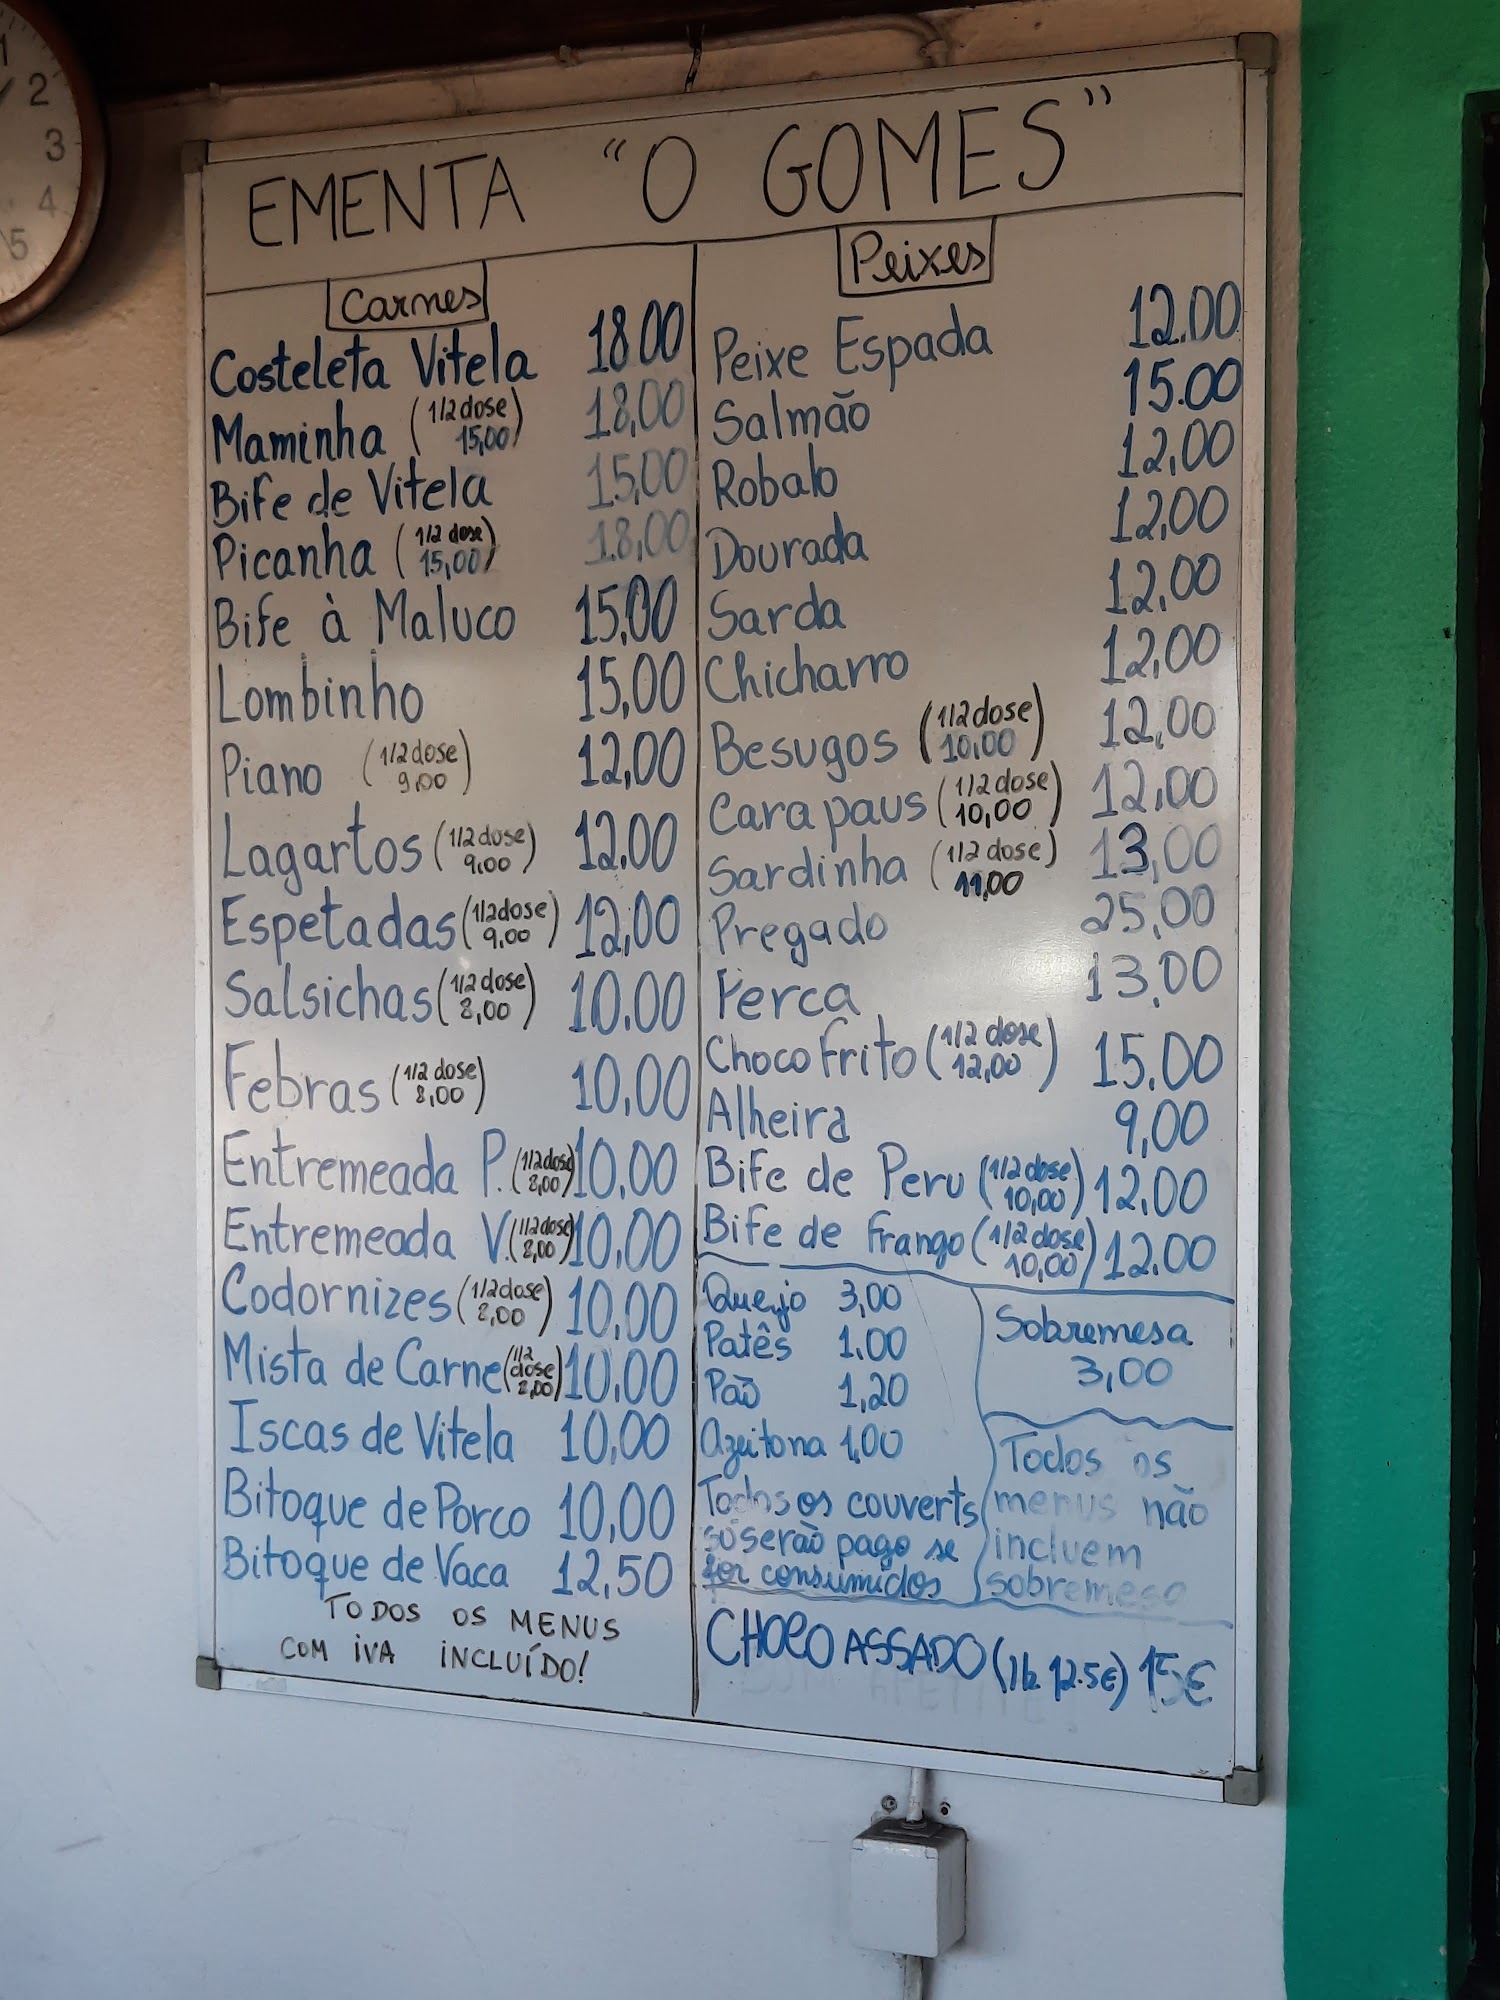 1
2
3
4
5
EMENTA "O GOMES"
Carnes
Costeleta Vitela 18.00
Maminha (1/2 dose 15,00) 18,00
Bife de Vitela 15,00
Picanha (1/2 dose 15,00) 18,00
Bife à Maluco 15,00
Lombinho 15,00
Piano (1/2 dose 9,00) 12,00
Lagartos (1/2 dose 9,00) 12,00
Espetadas (1/2 dose 9,00) 12,00
Salsichas (1/2 dose 8,00) 10.00
Febras (1/2 dose 8,00) 10,00
Entremeada P. (1/2 dose 8,00) 10,00
Entremeada V. (1/2 dose 8,00) 10,00
Codornizes (1/2 dose 8,00) 10,00
Mista de Carne (1/2 dose 8,00) 10,00
Iscas de Vitela 10,00
Bitoque de Porco 10,00
Bitoque de Vaca 12,50
TODOS OS MENUS
COM IVA INCLUÍDO!
Peixes
Peixe Espada 12.00
Salmão 15.00
Robalo 12,00
Dourada 12,00
Sarda 12,00
Chicharro 12,00
Besugos (1/2 dose 10,00) 12,00
Carapaus (1/2 dose 10,00) 12,00
Sardinha (1/2 dose 11,00) 13,00
Pregado 25,00
Perca 13,00
Choco Frito (1/2 dose 12,00) 15,00
Alheira 9,00
Bife de Peru (1/2 dose 10,00) 12,00
Bife de Frango (1/2 dose 10,00) 12,00
Queijo 3,00
Patês 1.00
Pão 1,20
Azeitona 1,00
Todos os couverts
só serão pago se
for consumidos
Sobremesa
3,00
Todos os
menus não
incluem
sobremesa
CHOCO ASSADO (1/2 12.5€) 15€